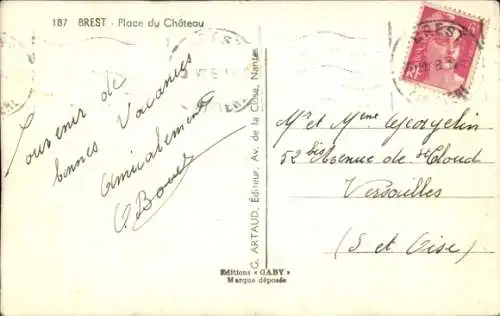 187 BREST - Place du Château
BREST
RF
Souvenir de
bonnes Vacances
Amicalement
G. ARTAUD, Éditeur, Av. de la Close, Nantes
Mr et Mme
52 bis Avenue de St Cloud
Versailles
(S et Oise)
Editions « GABY »
Marque déposée